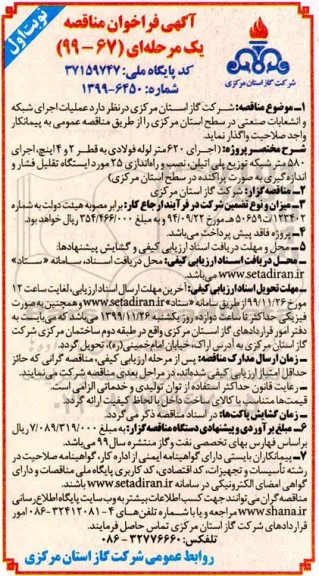 نوبت اول
آگهی فراخوان مناقصه
یک مرحله‌ای (۶۷ – ۹۹)
کد پایگاه ملی: ۳۷۱۵۹۷۴۷
شماره: ۶۴۵۰-۱۳۹۹
شرکت گاز استان مرکزی
۱–موضوع مناقصه: شرکت گاز استان مرکزی در نظر دارد عملیات اجرای شبکه
و انشعابات صنعتی در سطح استان مرکزی را از طریق مناقصه عمومی به پیمانکار
واجد صلاحیت واگذار نماید.
شرح مختصر پروژه: (اجرای ۶۲۰ متر لوله فولادی به قطر ۲ و ۴ اینچ، اجرای
۵۸۰ متر شبکه توزیع پلی اتیلن، نصب و راه‌اندازی ۲۵ مورد ایستگاه تقلیل فشار و
اندازه گیری بصورت پراکنده در سطح استان مرکزی)
۲–مناقصه گزار: شرکت گاز استان مرکزی
۳–میزان و نوع تضمین شرکت در فرآیند ارجاع کار: برابر مصوبه هیئت دولت به شماره
۱۲۳۴۰۲/ت ۵۰۶۵۹ هـ مورخ ۹۴/۰۹/۲۲ و به مبلغ ۳۵۴/۴۶۶/۰۰۰ ریال خواهد بود.
۴– پروژه فاقد پیش پرداخت می‌باشد.
۵– محل و مهلت دریافت اسناد ارزیابی کیفی و گشایش پیشنهادها:
– محل دریافت اسناد ارزیابی کیفی: محل دریافت اسناد، سامانه «ستاد»
www.setadiran.ir می‌باشد.
–مهلت تحویل اسناد ارزیابی کیفی: آخرین مهلت ارسال اسناد ارزیابی، لغایت ساعت ۱۲
مورخ ۹۹/۱۱/۲۶ از طریق سامانه «ستاد» www.setadiran.ir و همچنین به صورت
فیزیکی حداکثر تا ساعت دوازده روز یکشنبه ۱۳۹۹/۱۱/۲۶ می‌باشد که می‌بایست به
دفتر امور قراردادهای گاز استان مرکزی واقع در طبقه دوم ساختمان مرکزی شرکت
گاز استان مرکزی به آدرس اراک، خیابان امام‌خمینی(ره)، تحویل گردد.
– زمان ارسال مدارک مناقصه: پس از مرحله ارزیابی کیفی، مناقصه گرانی که حائز
حداقل امتیاز ارزیابی کیفی شده‌اند، در مراحل بعدی مناقصه شرکت می‌نمایند.
– رعایت قانون حداکثر استفاده از توان تولیدی و خدماتی الزامی است.
قیمت‌ها متناسب با کالای ساخت داخل با لحاظ کیفیت ارائه گردد.
– زمان گشایش پاکت‌ها: در اسناد مناقصه ذکر می‌گردد.
۶– مبلغ برآوردی و پیشنهادی دستگاه مناقصه گزار: به مبلغ ۷/۰۸۹/۳۱۹/۰۰۰ ریال
براساس فهارس بهای تخصصی نفت و گاز منتشره سال ۹۹ می‌باشد.
۷– پیمانکاران بایستی دارای گواهینامه ایمنی از اداره کار، گواهینامه صلاحیت در
رشته تأسیسات و تجهیزات، کد اقتصادی، کد کاربری پایگاه ملی مناقصات و دارای
گواهی امضای الکترونیکی در سامانه www.setadiran.ir باشند.
مناقصه گران می‌توانند جهت کسب اطلاعات بیشتر به وب سایت پایگاه اطلاع رسانی
www.shana.ir مراجعه و یا با شماره تلفن‌های ۴ – ۳۲۴۱۲۰۸۱-۰۸۶ امور
قراردادهای شرکت گاز استان مرکزی تماس حاصل فرمایند.
تلفکس: ۳۲۷۷۶۶۶۰ – ۰۸۶
روابط عمومی شرکت گاز استان مرکزی